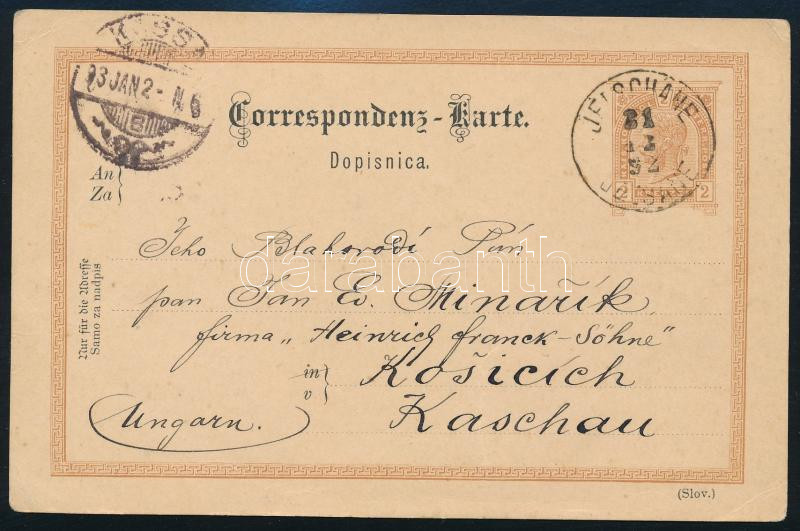 KASSA
93 JAN 2 - N 6
B
Correspondenz-Karte.
Dopisnica.
JELSCHANE
31
12
92
JELŠANE
2 2
An
Za
Nur für die Adresse
Samo za nadpis
Jeho Blahorodí Pán
pan Jan Ev. Minařík
firma „Heinrich Franck-Söhne"
in
v
Košicích
Kaschau
Ungarn.
(Slov.)
darabanth